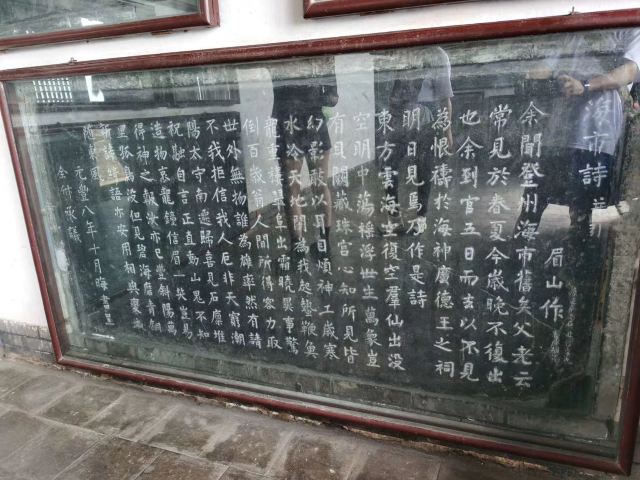 海市詩
眉山作
余聞登州海市舊矣父老云
常見於春夏今歲晚不復出
也余到官五日而去以不見
為恨禱於海神廣德王之祠
明日見焉乃作是詩
東方雲海空復空羣仙出沒
空明中蕩搖浮世生萬象豈
有貝闕藏珠宮心知所見皆
幻影敢以耳目煩神工歲寒
水冷天地閉為我起蟄鞭魚
龍重樓翠阜出霜曉異事驚
倒百歲翁人間所得容力取
世外無物誰為雄率然有請
不我拒信我人厄非天窮潮
陽太守南遷歸喜見石廩堆
祝融自言正直動山鬼不知
造物哀龍鍾信眉一笑豈易
得神之報汝亦已豐斜陽萬
里孤鳥沒但見碧海磨青銅
新詩綺語亦安用相與變滅
隨東風 元豐八年十月晦書呈
承議